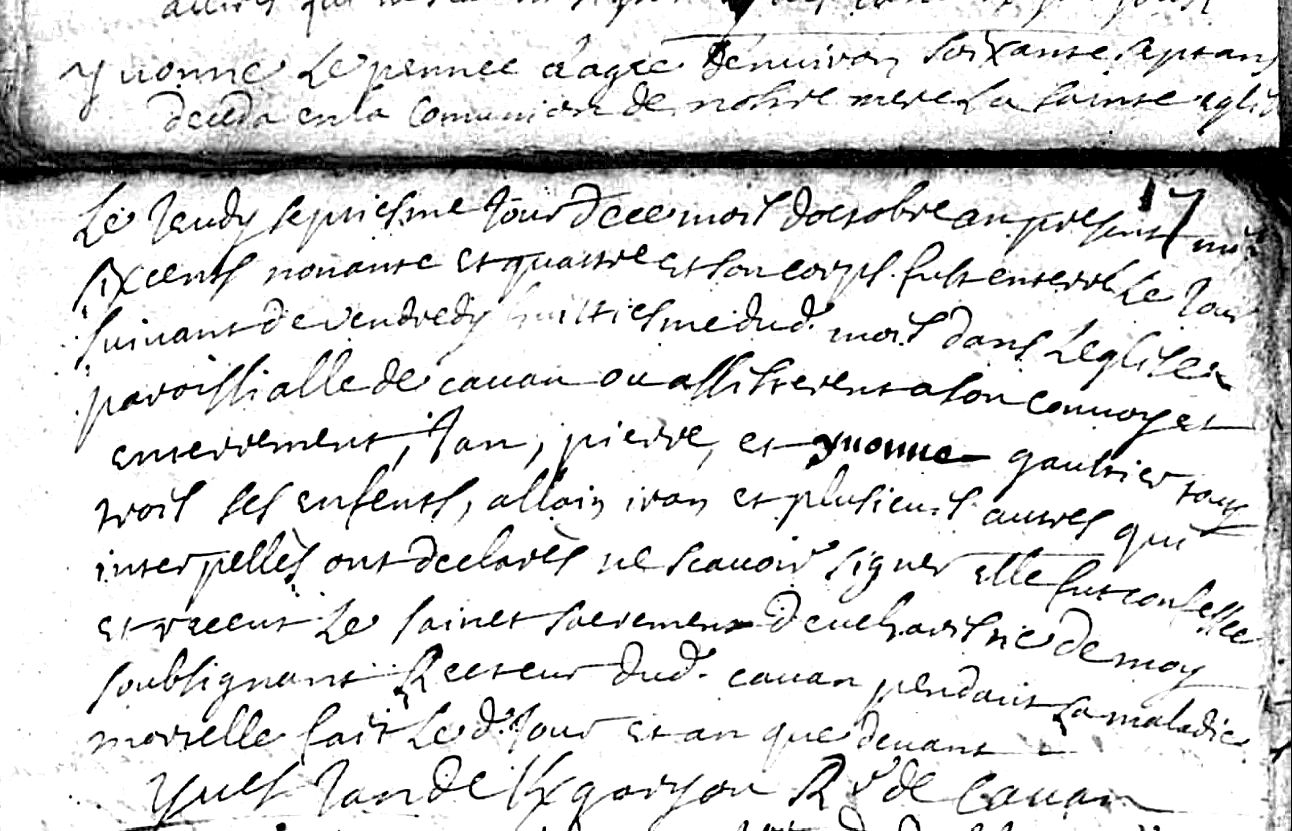 yvonne Le pennec aagee denviron soixante sept ans
deceda en la comunion de nostre mere La sainte eglis
17
Le Jeudy septiesme Jour de ce mois doctobre an present mil
sixcents nonante et quattre et son corps fust enterré Le Jour
suivant de vendredy huittiesme dud. mois dans Leglise
paroissialle de cauan ou assisterent a son convoy et
enterrement, Jan, pierre, et yvonne gaultier tous
trois ses enfents, allain ivan et plusieurs autres qui
interpellès ont declarès ne scavoir signer elle fut confessee
et receut Le sainct sacrement deucharistie de moy
soubsignant Recteur dud. cauan pendant La maladie
mortelle fait Le d. Jour et an que devant
yves Jan de Kgariou Rr de Cauan